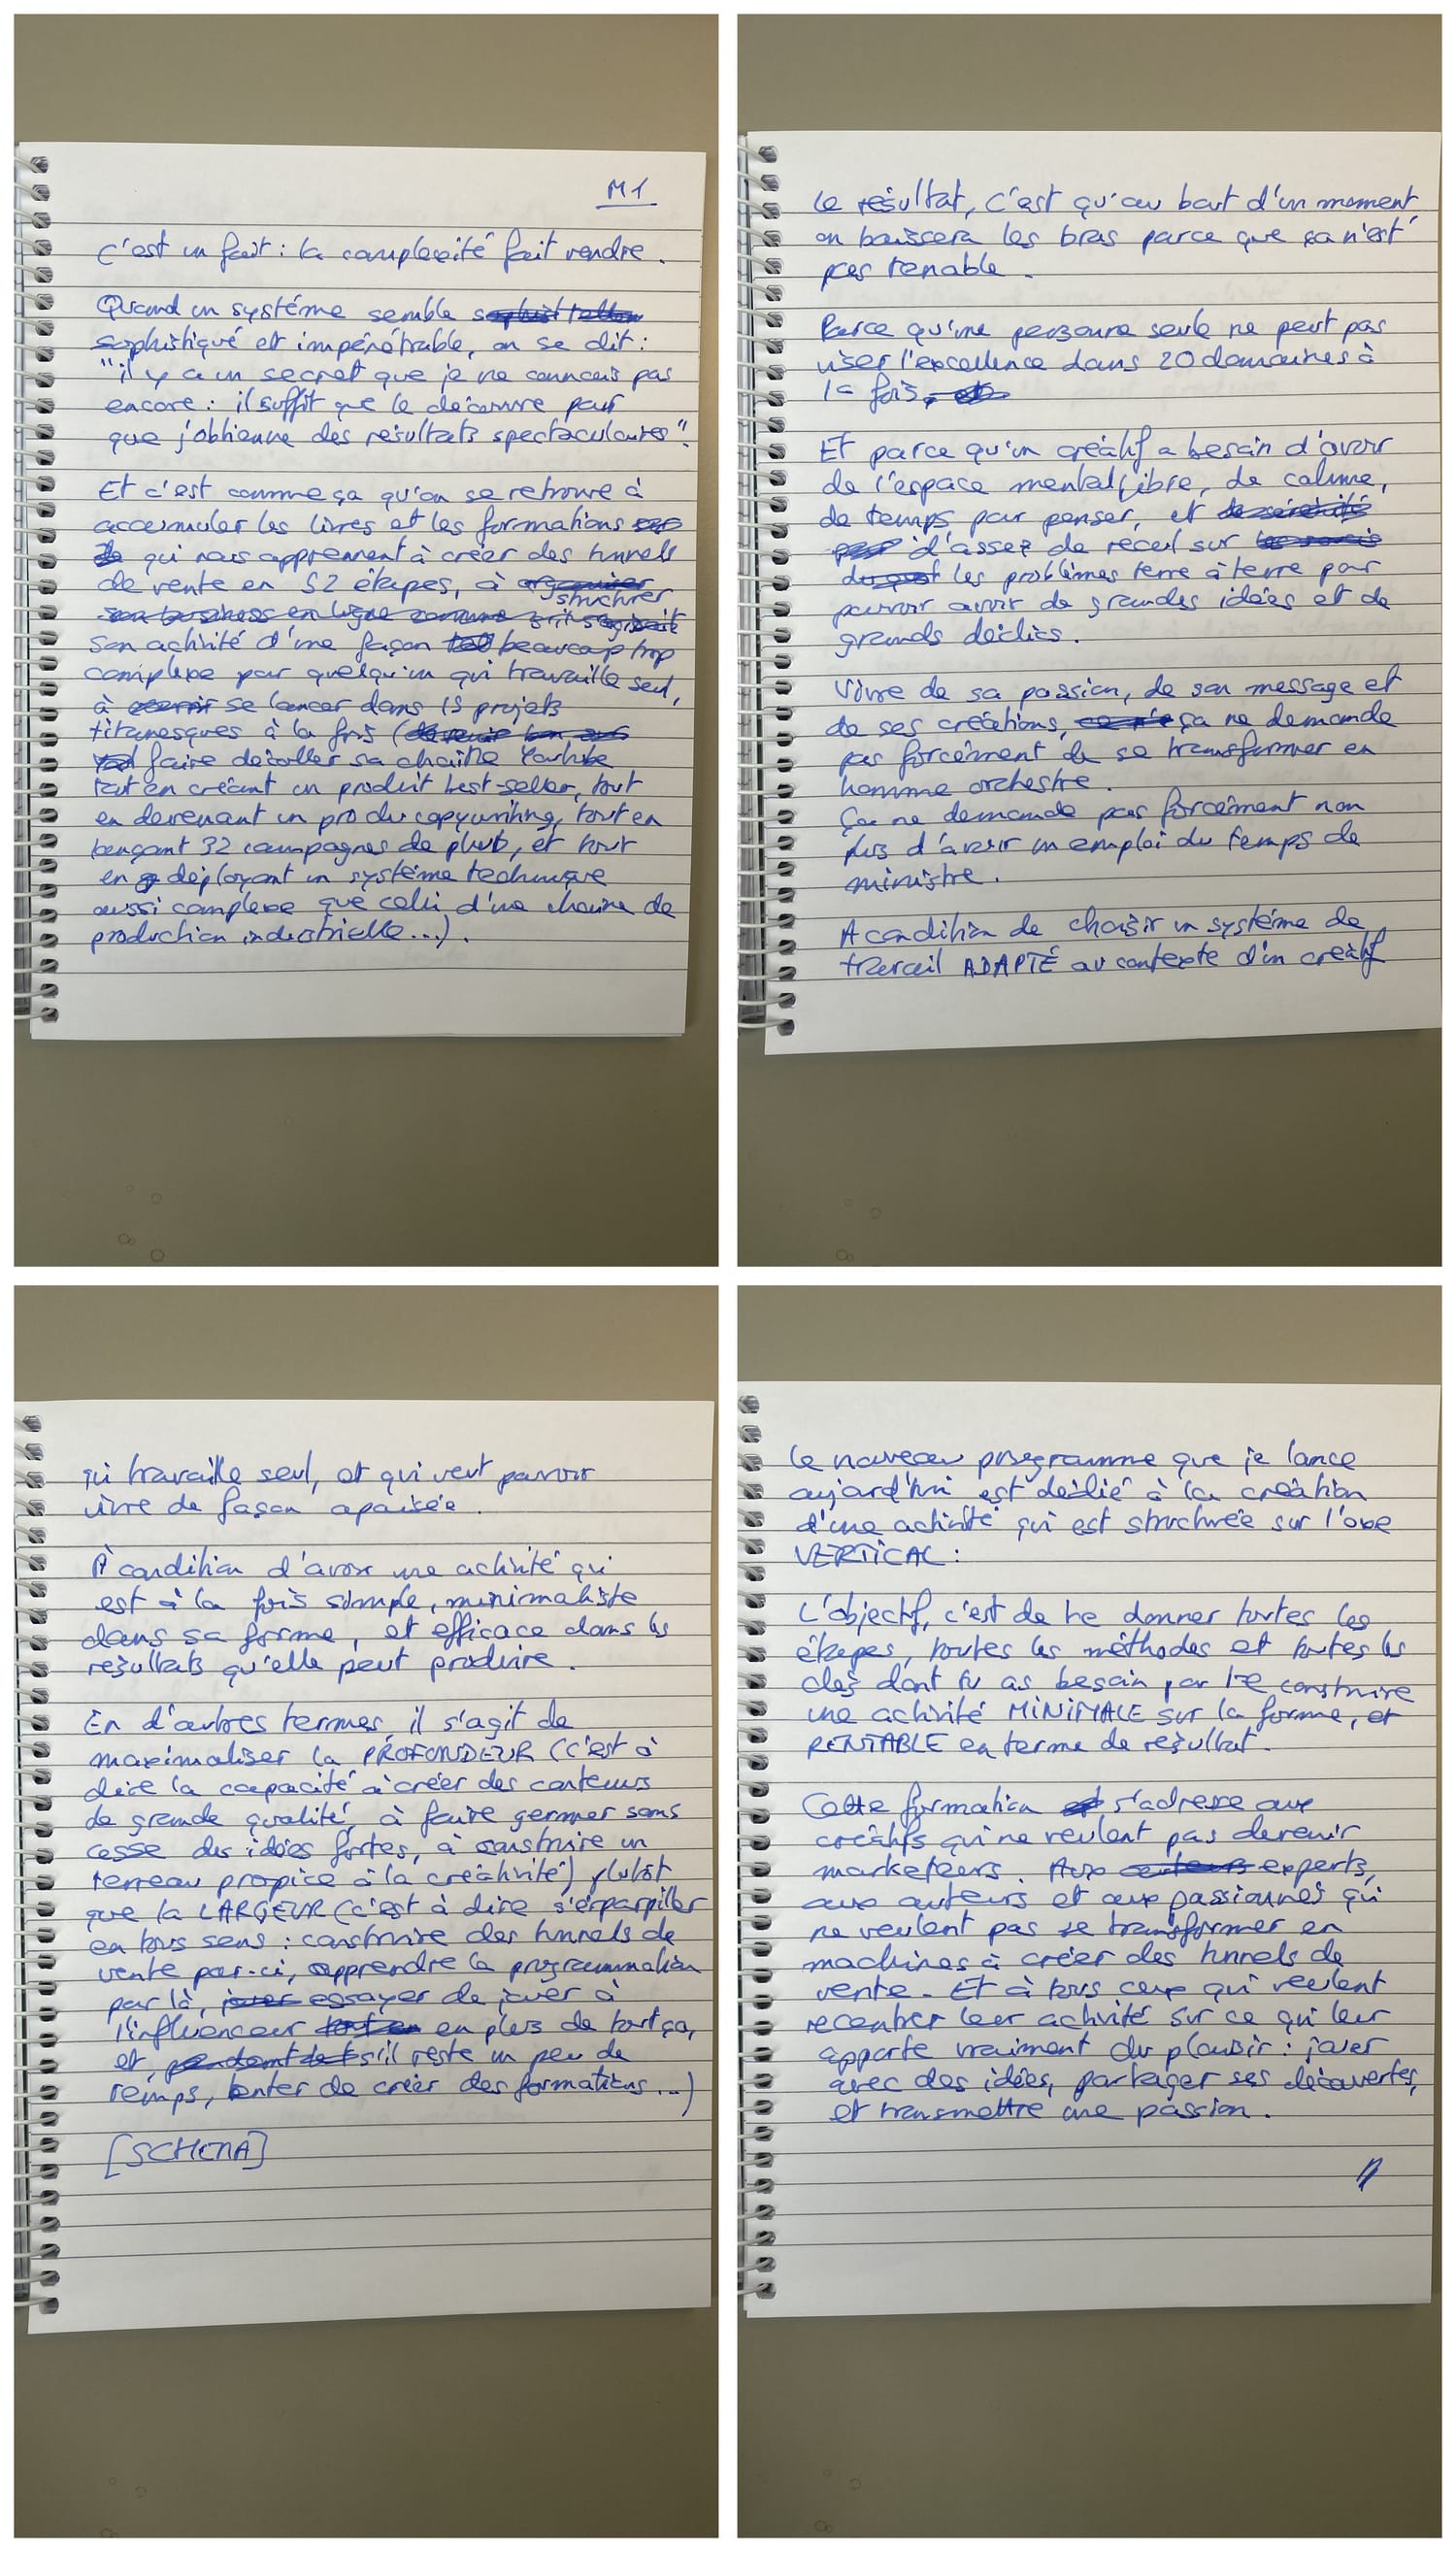 M1
C'est un fait : la complexité fait vendre.
Quand un système semble
sophistiqué et impénétrable, on se dit :
"il y a un secret que je ne connais pas
encore : il suffit que le découvre pour
que j'obtienne des résultats spectaculaires".
Et c'est comme ça qu'on se retrouve à
accumuler les livres et les formations
qui nous apprennent à créer des tunnels
de vente en 52 étapes, à
structurer
son activité d'une façon beaucoup trop
complexe pour quelqu'un qui travaille seul,
à se lancer dans 15 projets
titanesques à la fois (
faire décoller sa chaîne Youtube
tout en créant un produit best-seller, tout
en devenant un pro du copywriting, tout en
lançant 32 campagnes de pub, et tout
en déployant un système technique
aussi complexe que celui d'une chaine de
production industrielle...).
Le résultat, c'est qu'au bout d'un moment
on baissera les bras parce que ça n'est
pas tenable.
Parce qu'une personne seule ne peut pas
viser l'excellence dans 20 domaines à
la fois
Et parce qu'un créatif a besoin d'avoir
de l'espace mental libre, de calme,
de temps pour penser, et
d'assez de recul sur
les problèmes terre à terre pour
pouvoir avoir de grandes idées et de
grands déclics.
Vivre de sa passion, de son message et
de ses créations, ça ne demande
pas forcément de se transformer en
homme orchestre.
Ça ne demande pas forcément non
plus d'avoir un emploi du temps de
ministre.
A condition de choisir un système de
travail ADAPTÉ au contexte d'un créatif
qui travaille seul, et qui veut pouvoir
vivre de façon apaisée.
À condition d'avoir une activité qui
est à la fois simple, minimaliste
dans sa forme, et efficace dans les
résultats qu'elle peut produire.
En d'autres termes, il s'agit de
maximaliser la PROFONDEUR (c'est à
dire la capacité à créer des contenus
de grande qualité, à faire germer sans
cesse des idées fortes, à construire un
terreau propice à la créativité) plutôt
que la LARGEUR (c'est à dire s'éparpiller
en tous sens : construire des tunnels de
vente par-ci, apprendre la programmation
par là, essayer de jouer à
l'influenceur en plus de tout ça,
et, s'il reste un peu de
temps, tenter de créer des formations...)
[SCHEMA]
Le nouveau programme que je lance
aujourd'hui est dédié à la création
d'une activité qui est structurée sur l'axe
VERTICAL :
L'objectif, c'est de te donner toutes les
étapes, toutes les méthodes et toutes les
clés dont tu as besoin pour te construire
une activité MINIMALE sur la forme, et
RENTABLE en terme de résultat.
Cette formation s'adresse aux
créatifs qui ne veulent pas devenir
marketeurs. Aux experts,
aux auteurs et aux passionnés qui
ne veulent pas se transformer en
machines à créer des tunnels de
vente. Et à tous ceux qui veulent
recentrer leur activité sur ce qui leur
apporte vraiment du plaisir : jouer
avec des idées, partager ses découvertes,
et transmettre une passion.